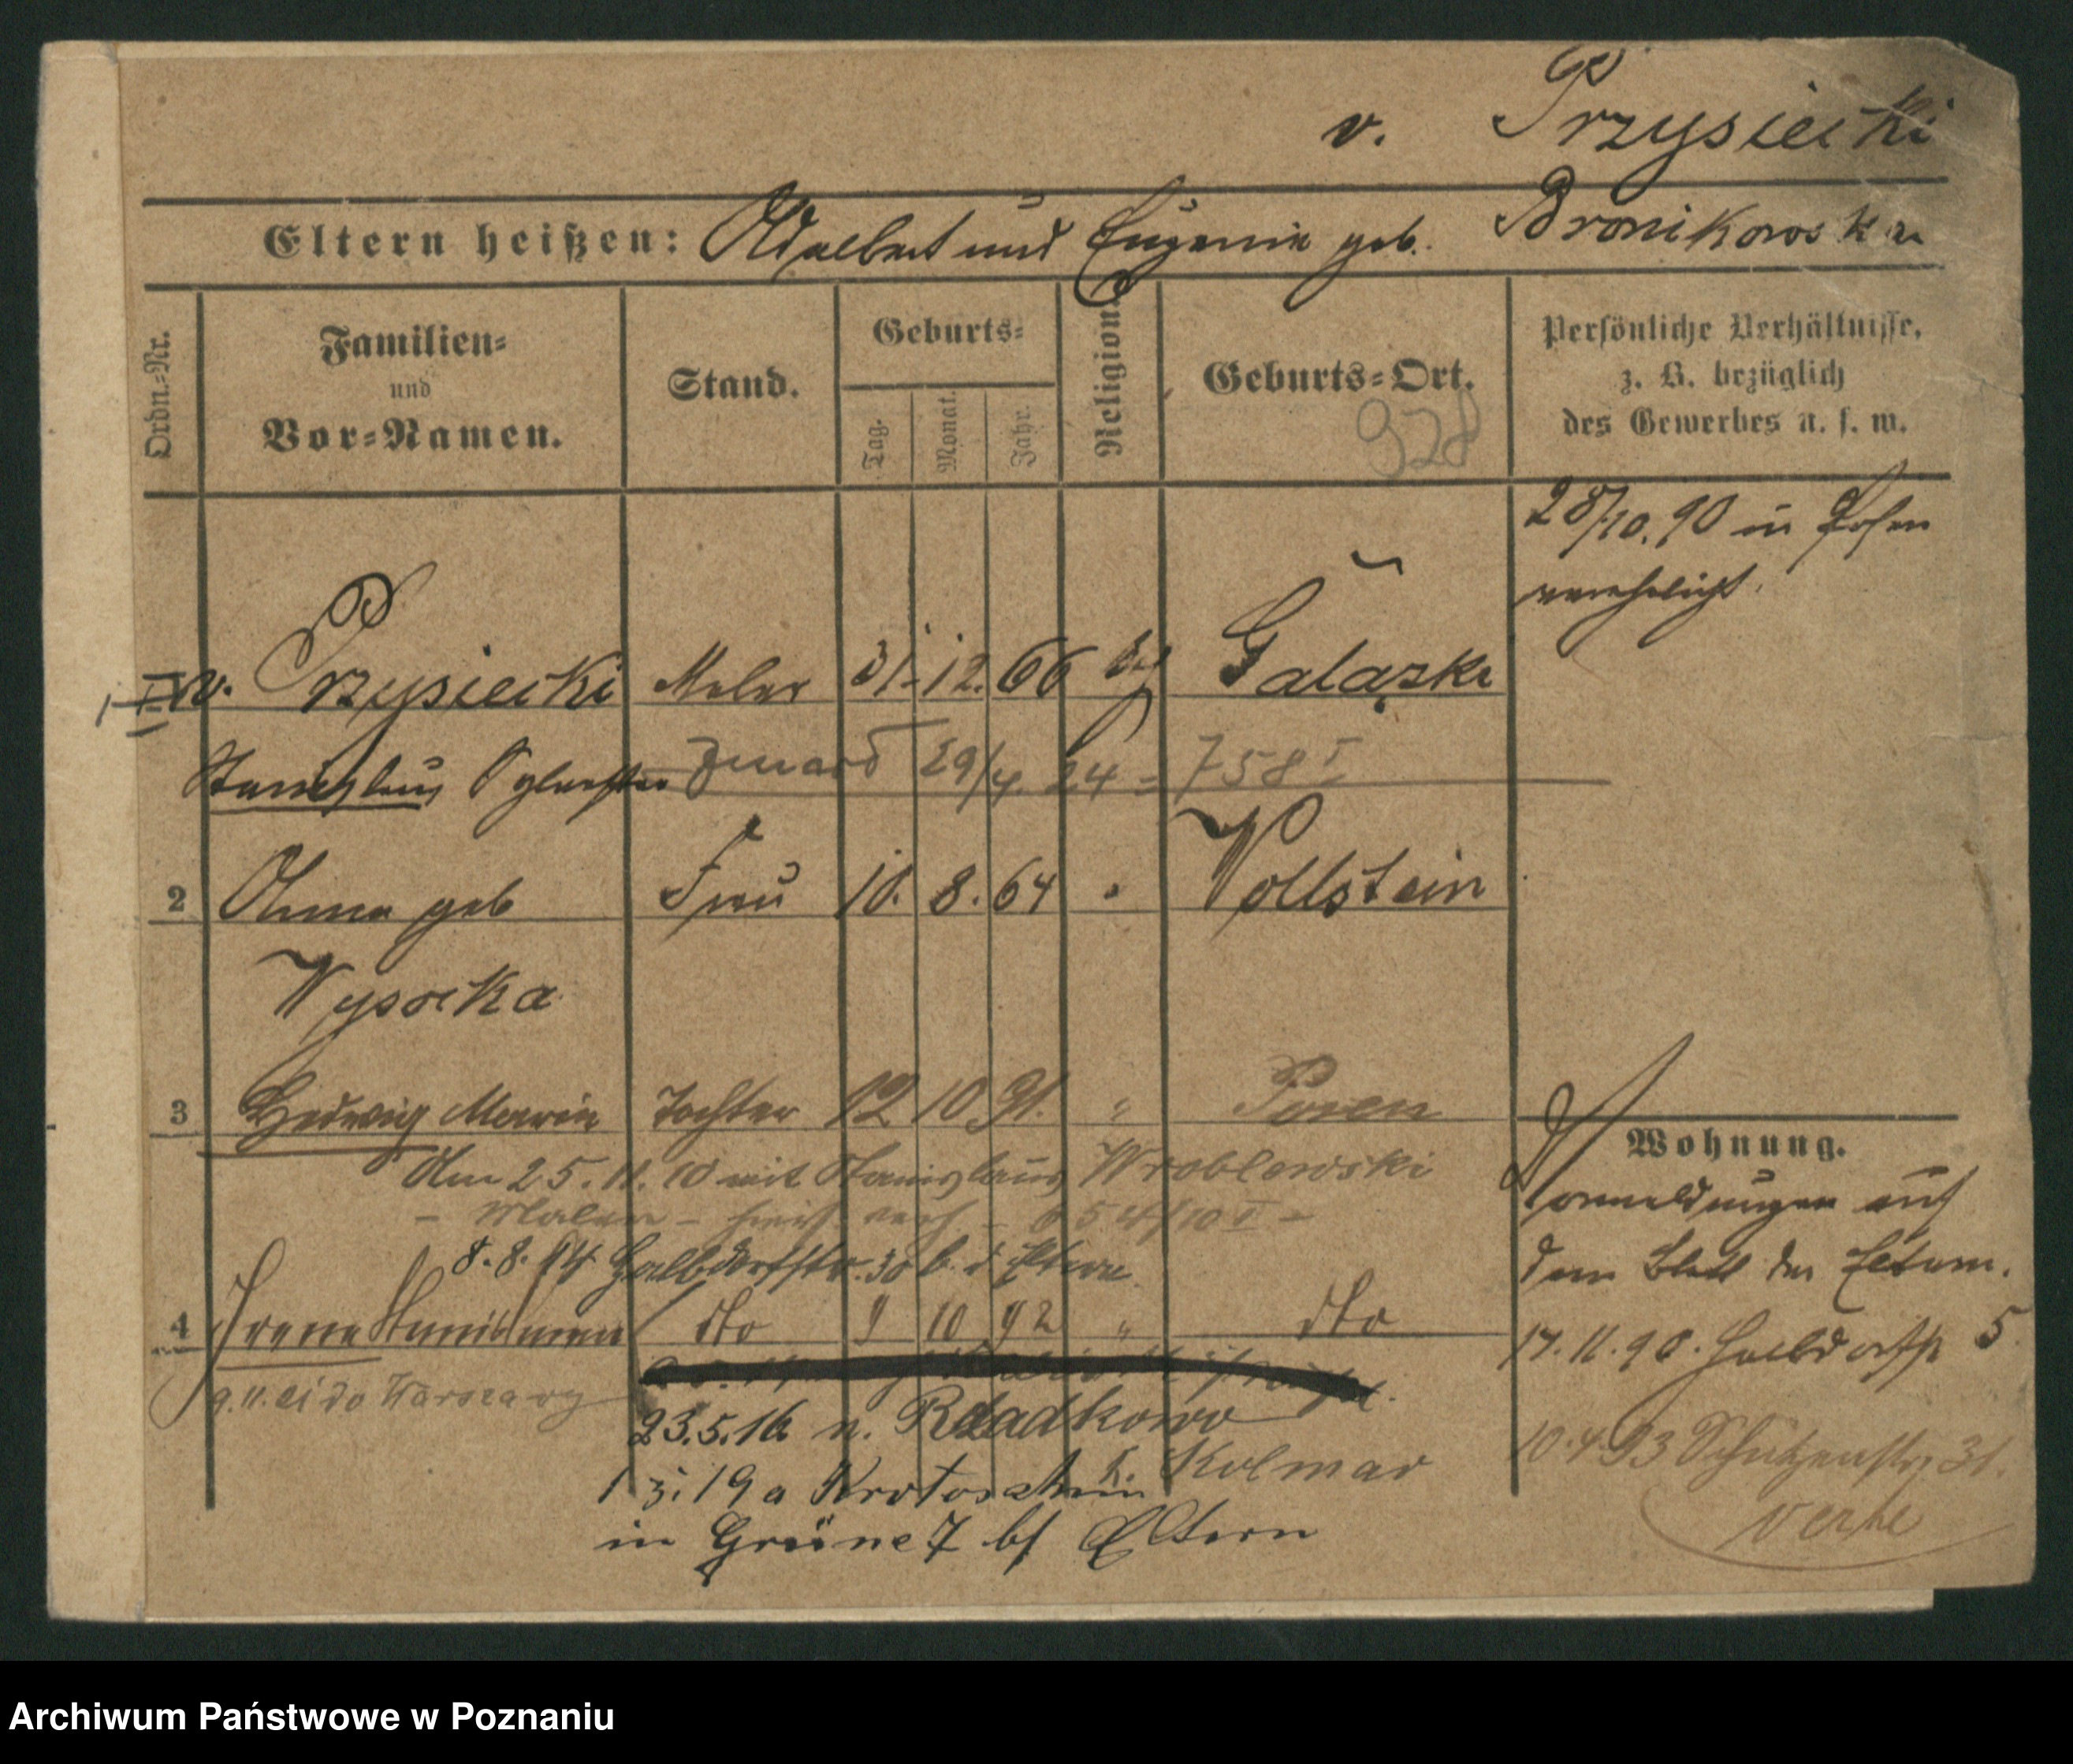 v. Przysiecki
Eltern heißen: Adalbert und Eugenie geb. Bronikowska
Ordn.-Nr.
Familien- und Vor-Namen.
Stand.
Geburts-
Tag. Monat. Jahr.
Religion.
Geburts-Ort.
928
Persönliche Verhältnisse,
z. B. bezüglich
des Gewerbes u. s. w.
28/10.90 in Posen
verehelicht.
v. Przysiecki Maler 31. 12. 66 Galązki
Stanislaus Sylvester 29/4. 24 = 758 I
2 Anna geb Frau 10. 8. 64 " Wollstein
Wysocka
3 Hedwig Marie Tochter 12 10 91. " Posen
Am 25. 11. 10 mit Stanislaus Wroblewski
- Maler - verh. -
8. 8. 14 Halbdorfstr. 30 b. d Eltern.
4 Irene dto 9 10 92 " dto
9.11. do Warszawy
23.5.16 n. Radkowo
k. Kolmar
1 3. 19 a Krotoschin
in Grüne 7 bf Eltern
Wohnung.
Vormeldungen auf
dem Blatt der Eltern.
17.11.90. Halbdorfstr 5
10.4.93 Schützenstr. 31.
verte
Archiwum Państwowe w Poznaniu